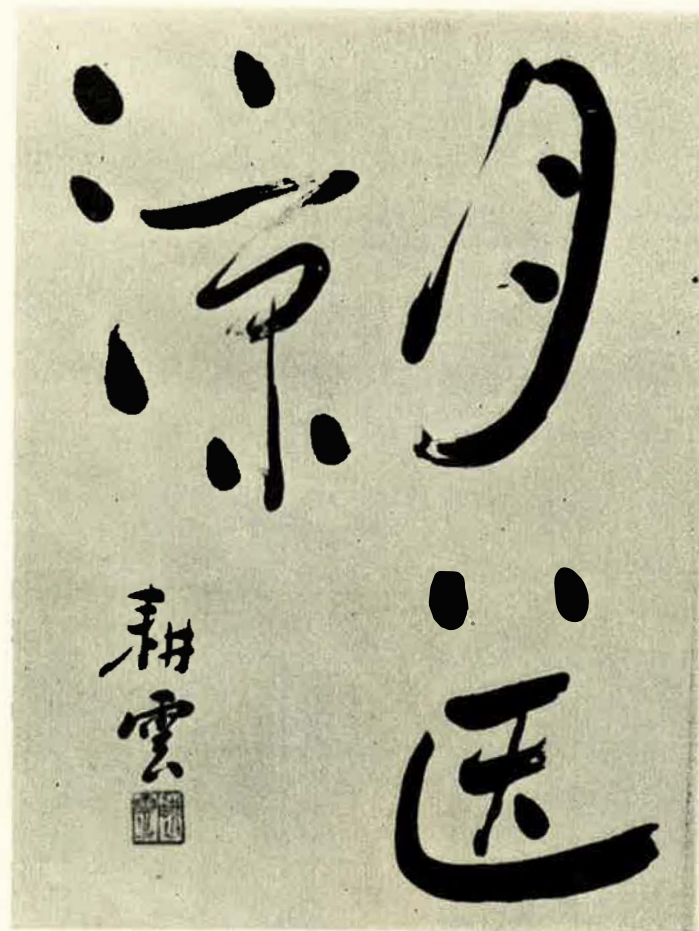 月送
涼
耕雲